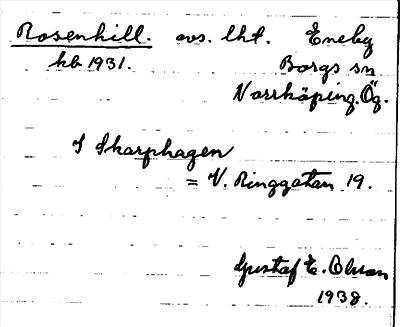 Rosenhill. avs. lht. Eneby
kb 1931. Borgs sn
Norrköping. Ög.
I Skarphagen
= V. Ringgatan 19.
Gustaf E. Olson
1938.